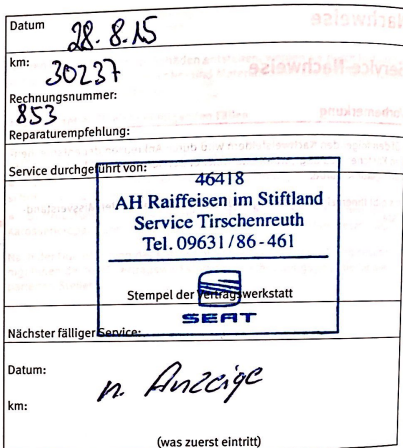 Datum 28.8.15
km: 30237
Rechnungsnummer:
853
Reparaturempfehlung:
Service durchgeführt von:
46418
AH Raiffeisen im Stiftland
Service Tirschenreuth
Tel. 09631/86-461
Stempel der Vertragswerkstatt
SEAT
Nächster fälliger Service:
Datum:
n. Anzeige
km:
(was zuerst eintritt)